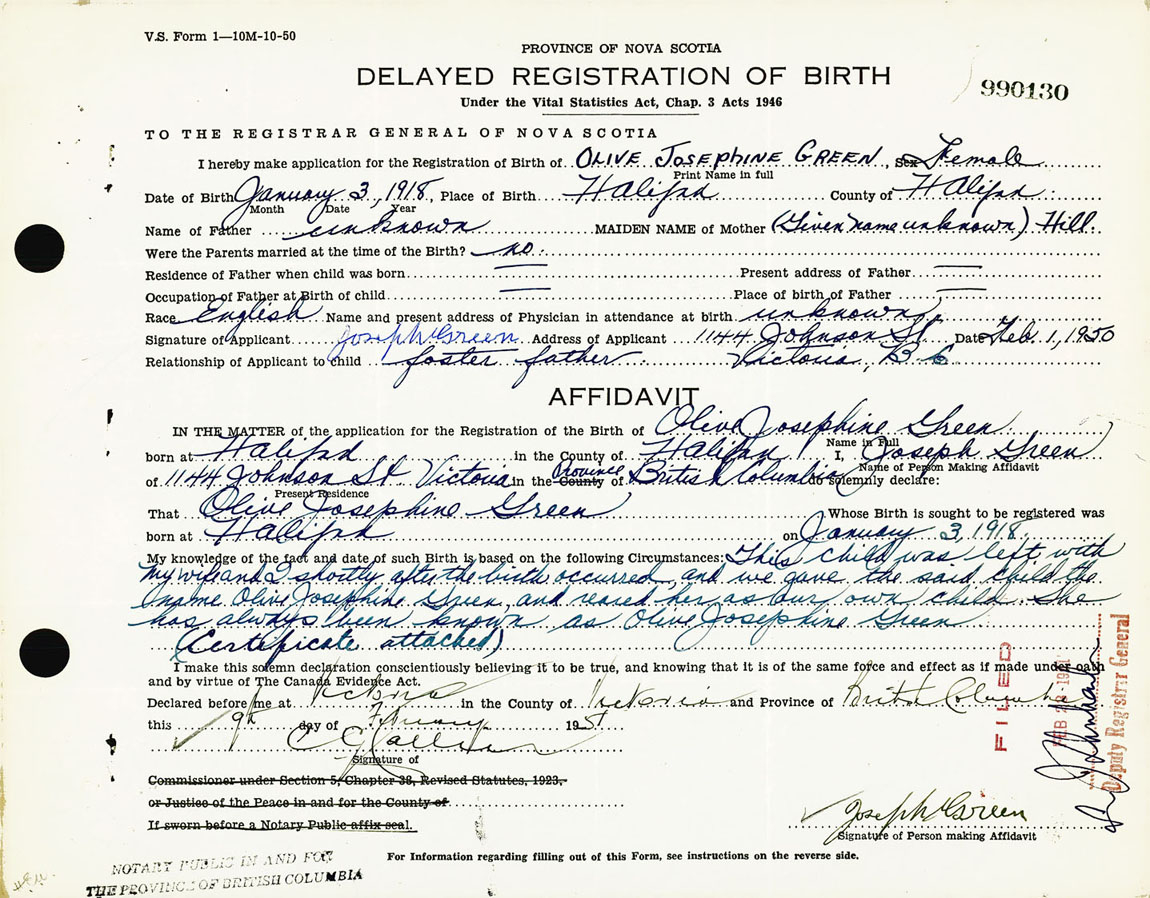 V.S. Form 1—10M-10-50
PROVINCE OF NOVA SCOTIA
DELAYED REGISTRATION OF BIRTH
990130
Under the Vital Statistics Act, Chap. 3 Acts 1946
TO THE REGISTRAR GENERAL OF NOVA SCOTIA
I hereby make application for the Registration of Birth of OLIVE JOSEPHINE GREEN, Sex Female
Print Name in full
Date of Birth January 3, 1918, Place of Birth Halifax County of Halifax
Month Date Year
Name of Father unknown MAIDEN NAME of Mother (Given name unknown) Hill.
Were the Parents married at the time of the Birth? no.
Residence of Father when child was born Present address of Father
Occupation of Father at Birth of child Place of birth of Father
Race English Name and present address of Physician in attendance at birth unknown
Signature of Applicant Joseph Green Address of Applicant 1144 Johnson St Date Feb. 1, 1950
Relationship of Applicant to child foster father Victoria, B C
AFFIDAVIT
IN THE MATTER of the application for the Registration of the Birth of Olive Josephine Green
Name in Full
born at Halifax in the County of Halifax I, Joseph Green
Name of Person Making Affidavit
of 1144 Johnson St Victoria in the County Province of British Columbia do solemnly declare:
Present Residence
That Olive Josephine Green Whose Birth is sought to be registered was
born at Halifax on January 3, 1918.
My knowledge of the fact and date of such Birth is based on the following Circumstances: This child was left with
my wife and I shortly after the birth occurred, and we gave the said child the
name Olive Josephine Green, and reared her as our own child. She
has always been known as Olive Josephine Green
(Certificate attached)
I make this solemn declaration conscientiously believing it to be true, and knowing that it is of the same force and effect as if made under oath
and by virtue of The Canada Evidence Act.
Declared before me at Victoria in the County of Victoria and Province of British Columbia
this 9th day of February 1951
Signature of
Commissioner under Section 5, Chapter 38, Revised Statutes, 1923,
or Justice of the Peace in and for the County of
If sworn before a Notary Public affix seal.
Joseph Green
Signature of Person making Affidavit
FILED
FEB
Deputy Registrar General
For Information regarding filling out of this Form, see instructions on the reverse side.
NOTARY PUBLIC IN AND FOR
THE PROVINCE OF BRITISH COLUMBIA